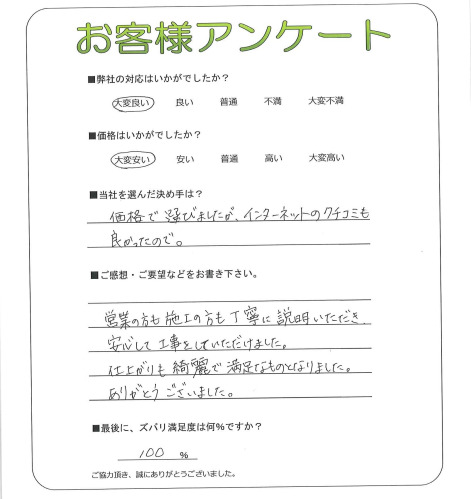 お客様アンケート
■弊社の対応はいかがでしたか?
大変良い 良い 普通 不満 大変不満
■価格はいかがでしたか?
大変安い 安い 普通 高い 大変高い
■当社を選んだ決め手は?
価格で選びましたが、インターネットのクチコミも
良かったので。
■ご感想・ご要望などをお書き下さい。
営業の方も施工の方も丁寧に説明いただき、
安心して工事をしていただけました。
仕上がりも綺麗で満足なものとなりました。
ありがとうございました。
■最後に、ズバリ満足度は何%ですか?
100 %
ご協力頂き、誠にありがとうございました。